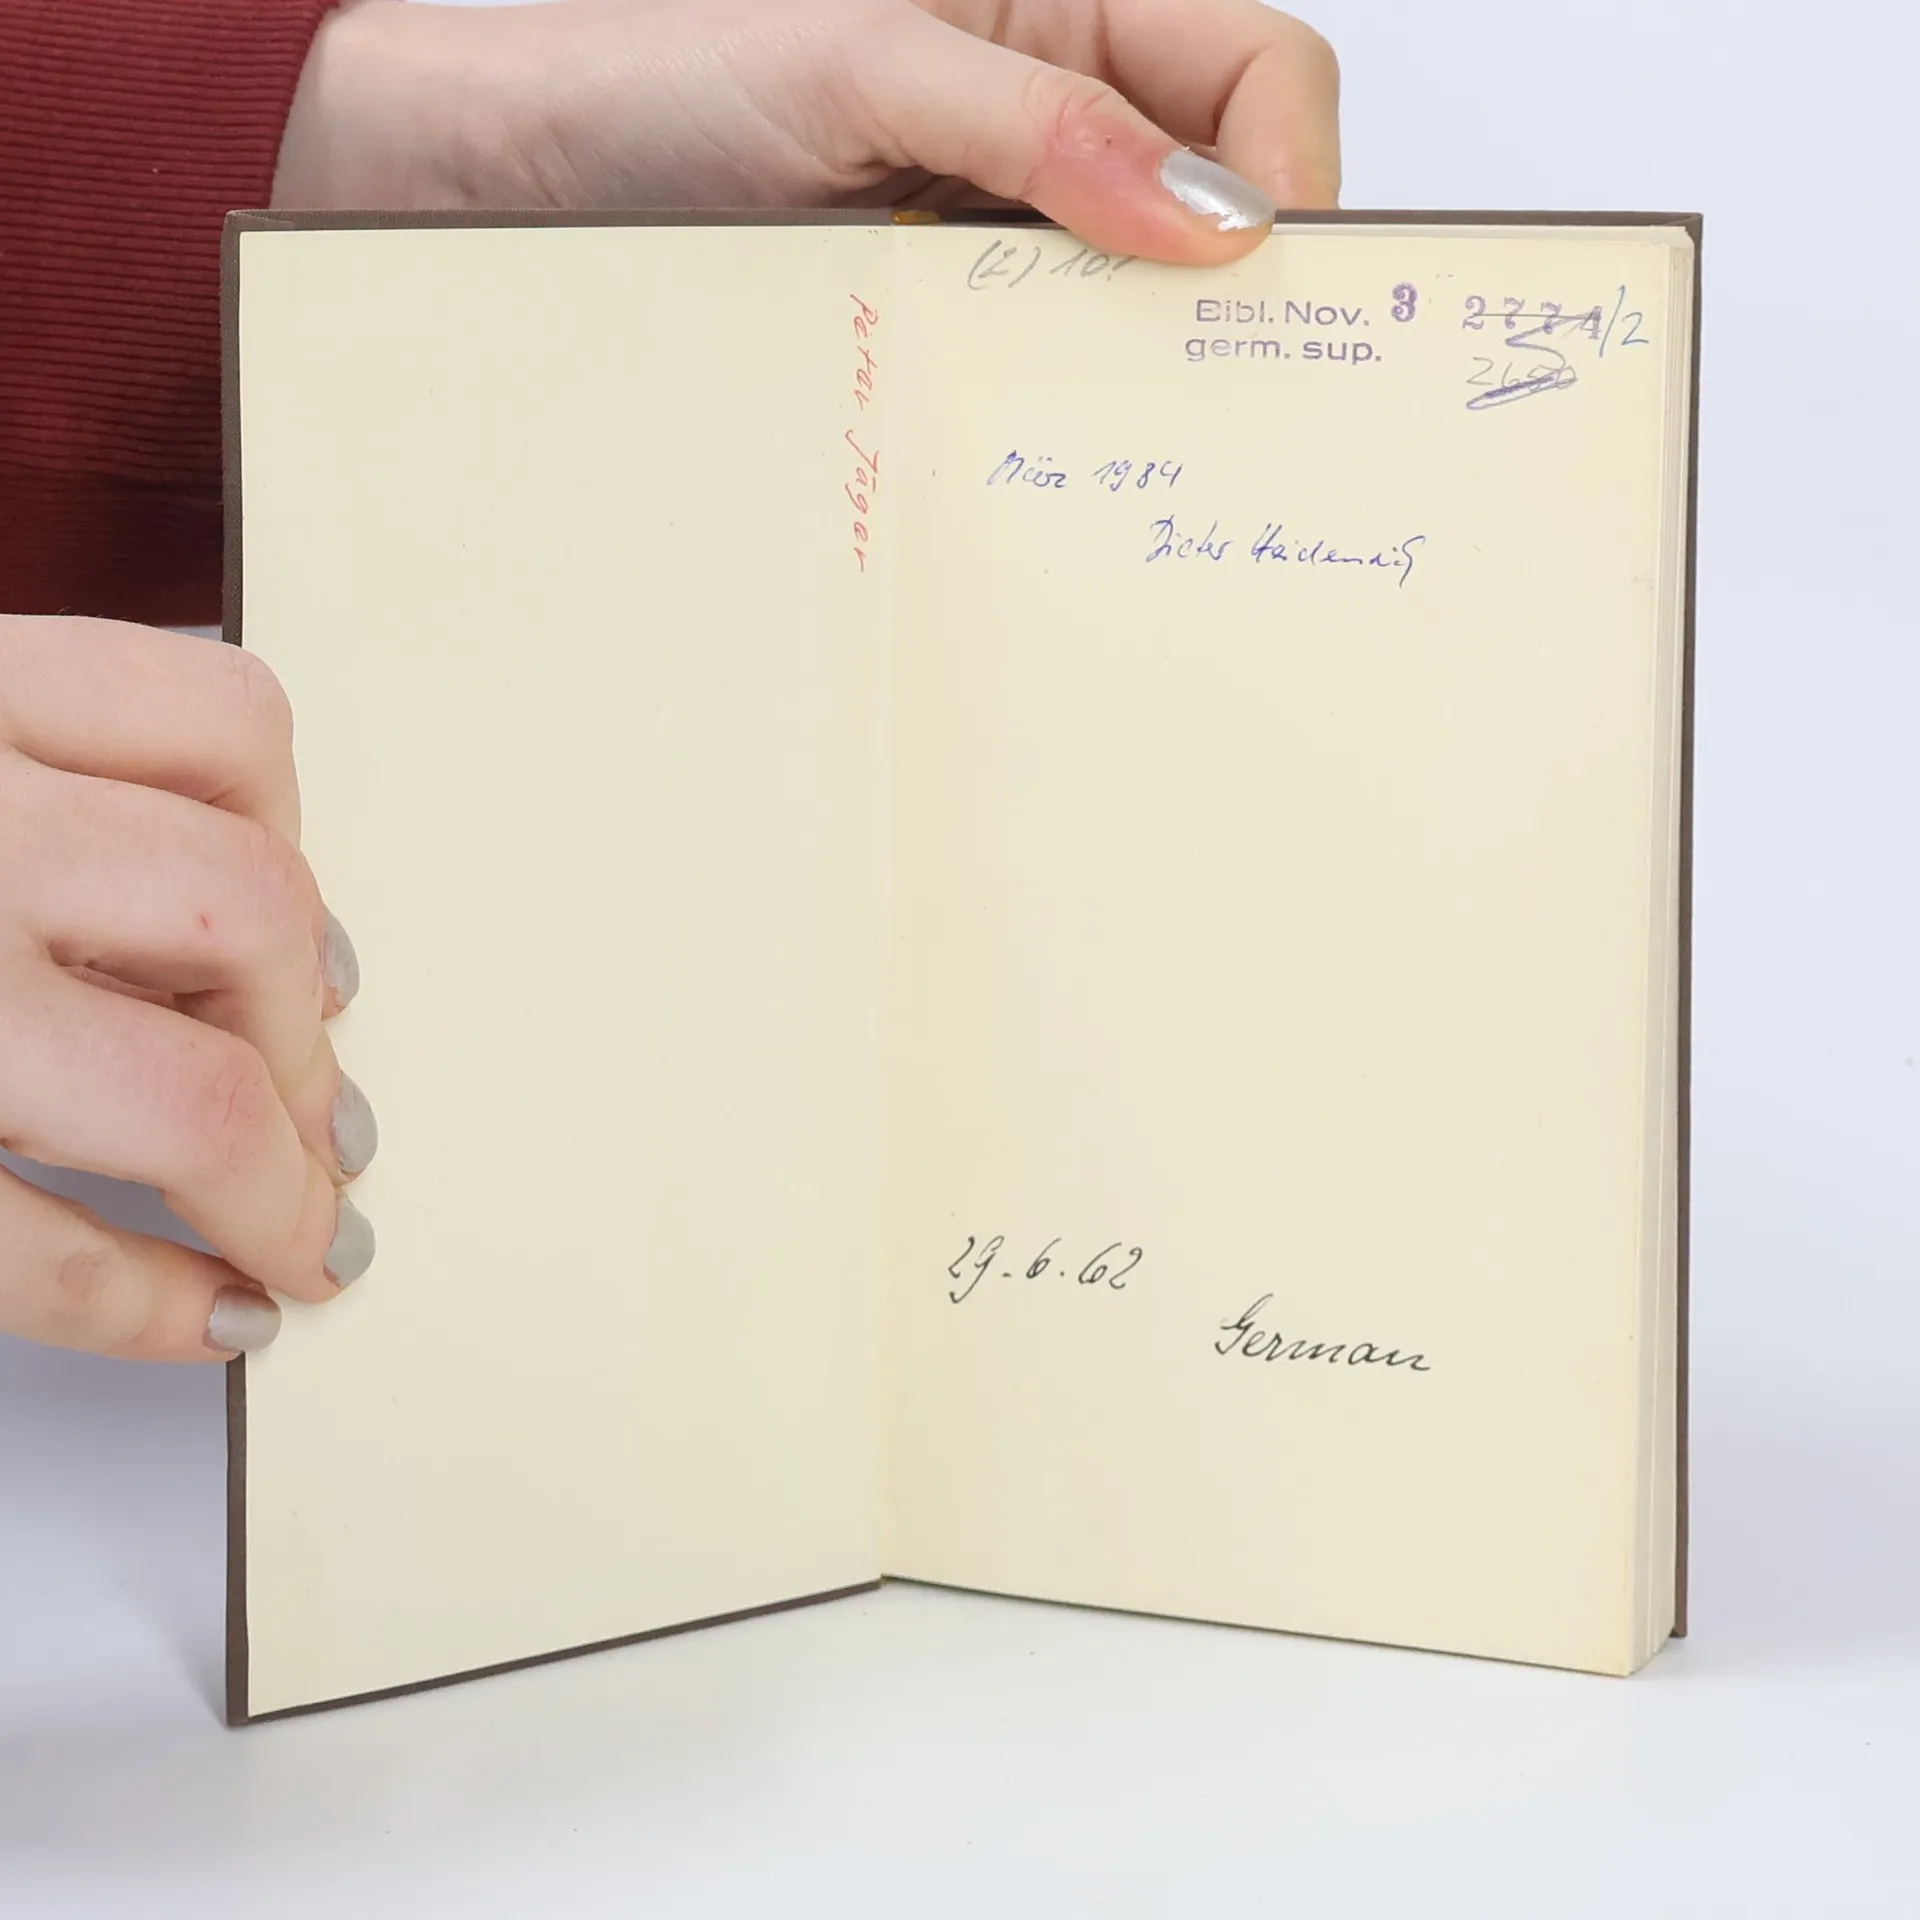 Peter Jäger
(2) 10.
Bibl. Nov. 3 2774/2
germ. sup.
März 1984
Dieter
29.6.62
German